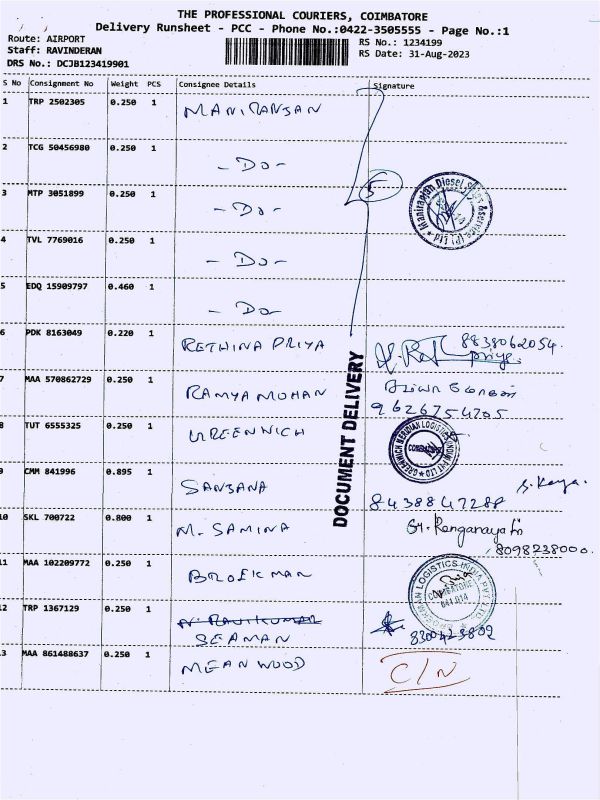 THE PROFESSIONAL COURIERS, COIMBATORE
Delivery Runsheet - PCC - Phone No.:0422-3505555 - Page No.:1
Route: AIRPORT
RS No.: 1234199
Staff: RAVINDERAN
RS Date: 31-Aug-2023
DRS No.: DCJB123419901
S No Consignment No Weight PCS Consignee Details Signature
1 TRP 2502305 0.250 1 MANIRANJAN
2 TCG 50456980 0.250 1 - Do -
3 MTP 3051899 0.250 1 - Do - 5
4 TVL 7769016 0.250 1 - Do -
5 EDQ 15909797 0.460 1 - Do -
6 PDK 8163049 0.220 1 RETHINA PRIYA 8838062054.
Priya.
7 MAA 570862729 0.250 1 RAMYA MOHAN
9626754705
8 TUT 6555325 0.250 1 GREENWICH
9 CMM 841996 0.895 1 SANJANA 8438847288 S. Kavya.
10 SKL 700722 0.800 1 M. SAMINA
8098238000.
11 MAA 102209772 0.250 1 BROEKMAN
12 TRP 1367129 0.250 1 N. RAVIKUMAR
SEAMAN 8300423802
13 MAA 861488637 0.250 1 MEANWOOD C/N
DOCUMENT DELIVERY